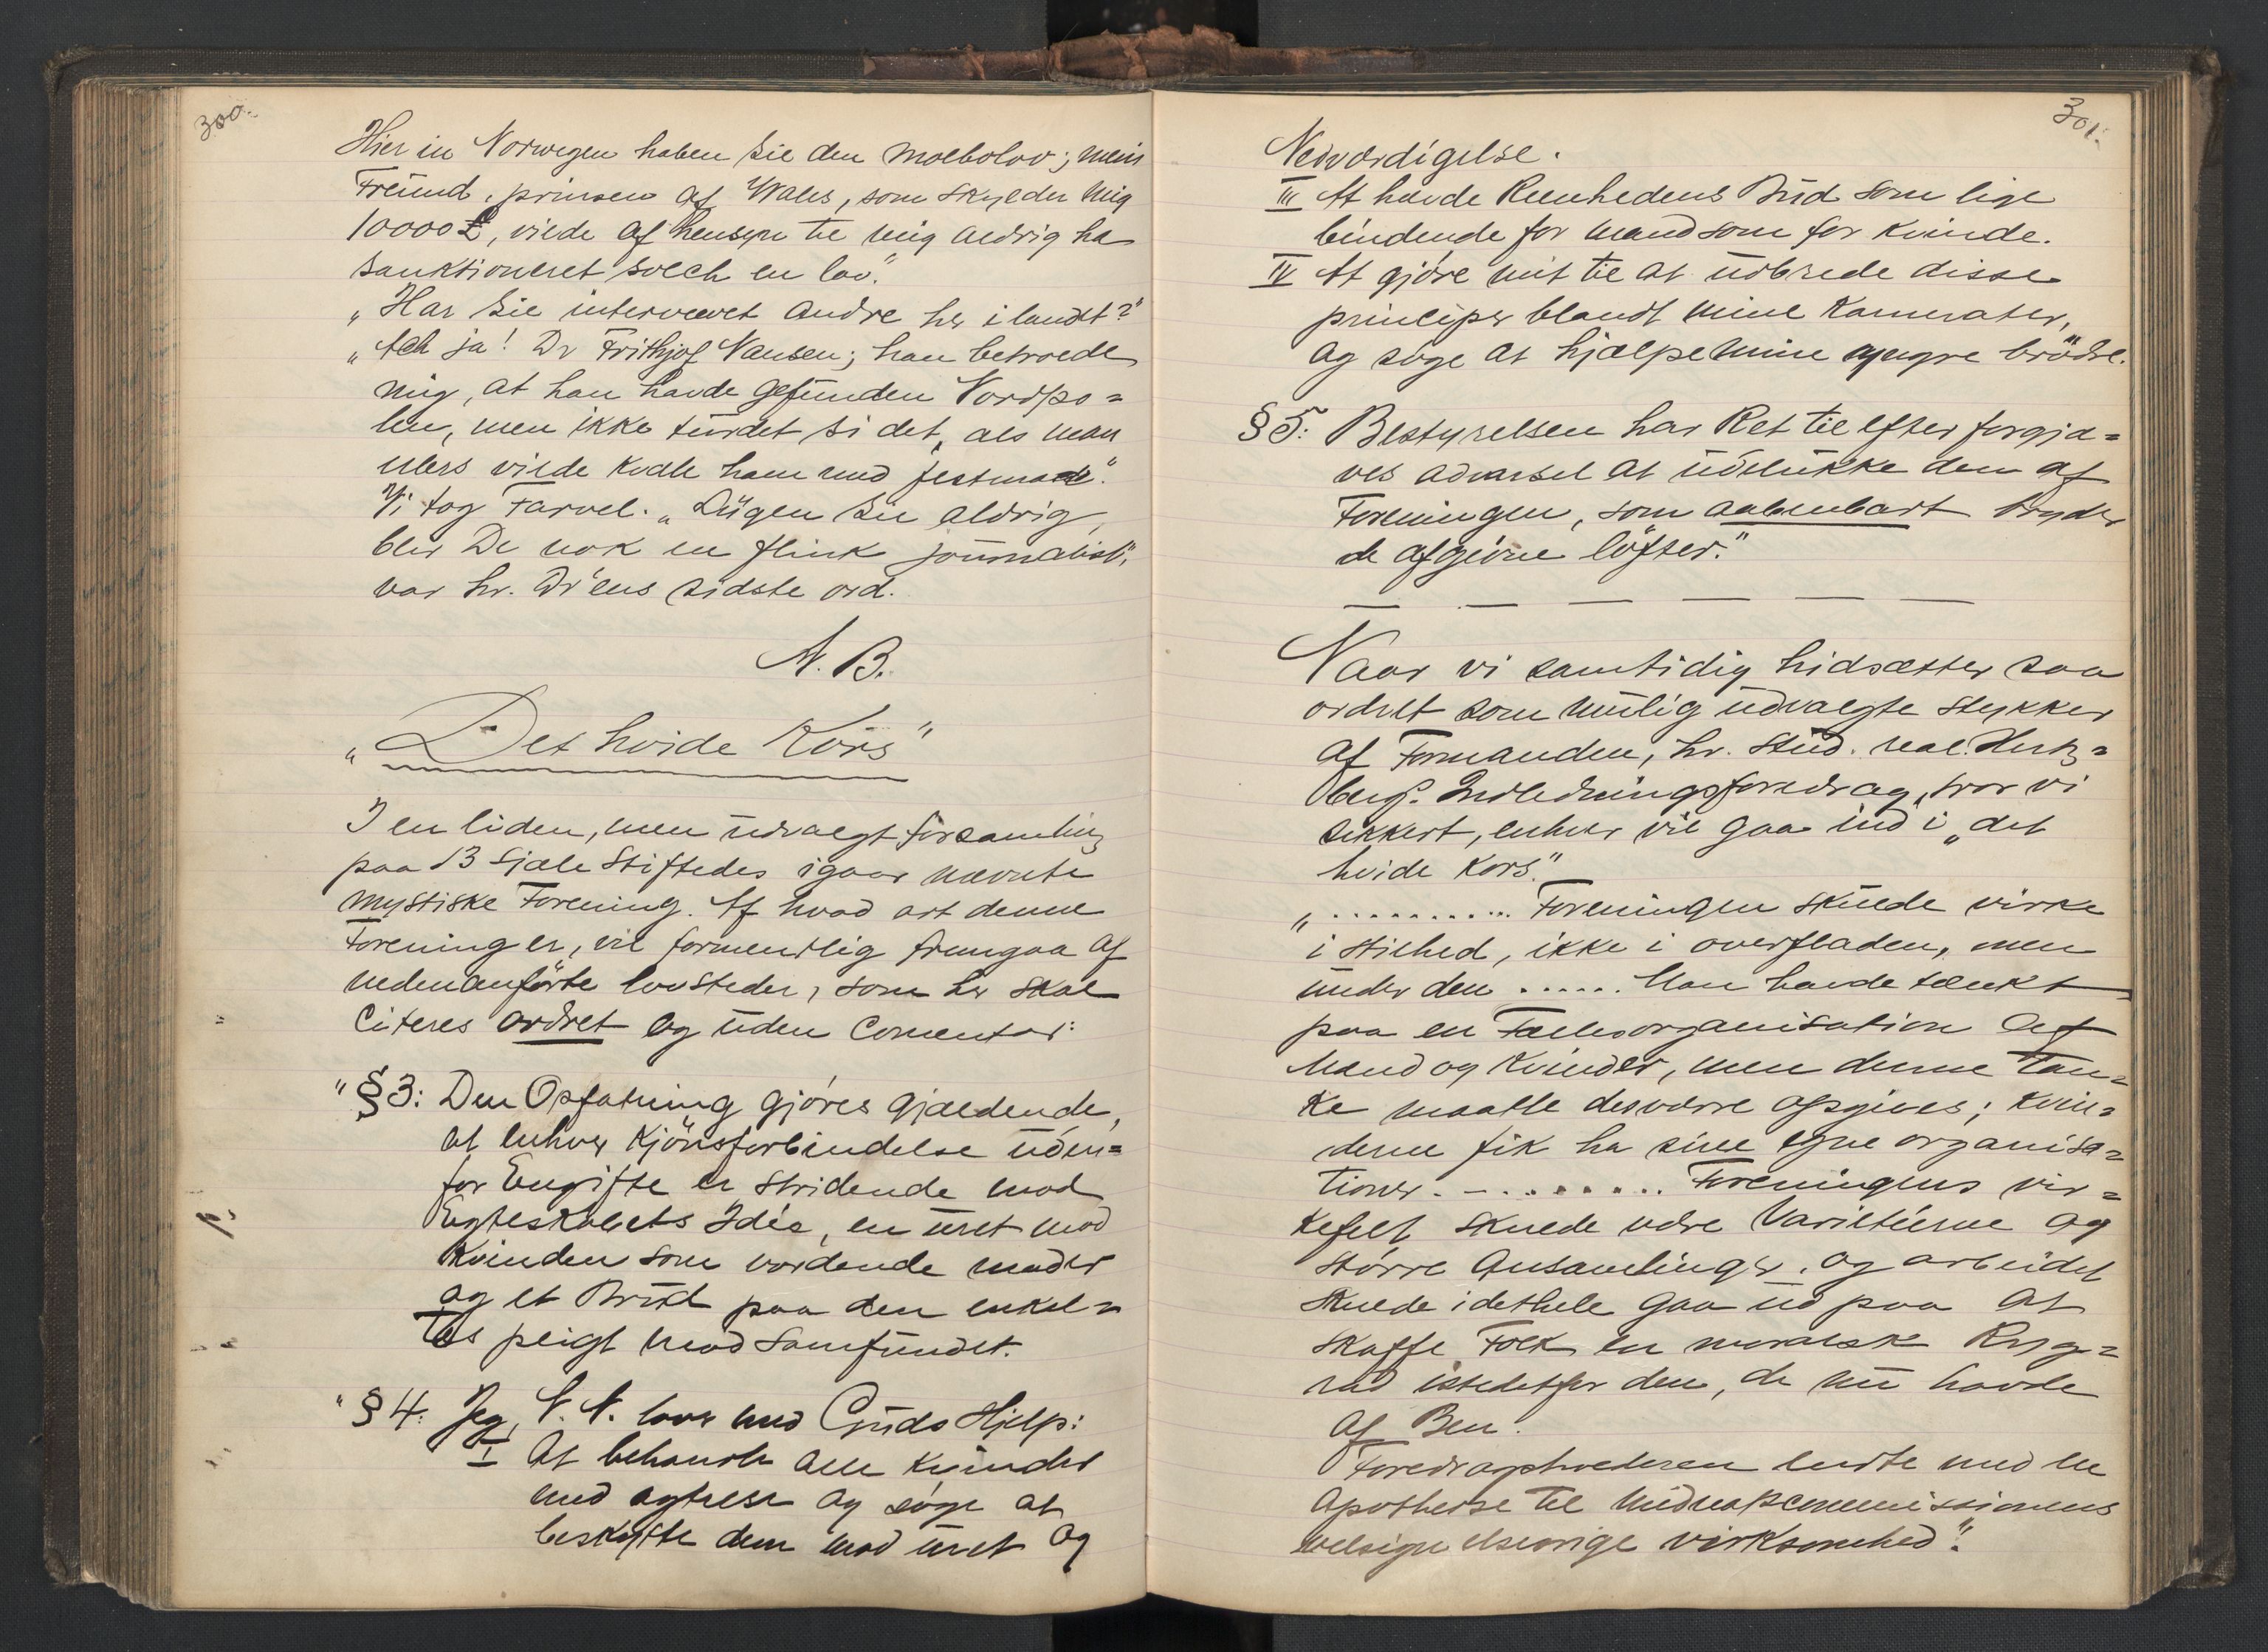 300.
Hier in Norwegen haben Sie den Molbolov; mein
Freund, prinsen af Wales, som skylder mig
10000£, vilde af hensyn til mig aldrig ha
sanktioneret solch en lov."
„Har Sie interviewet andre her i landet?"
„Ach ja! Dr Frithjof Nansen; han betroede
mig, at han havde gefunden Nordpo=
len, men ikke turdet si det, als man
ellers vilde kvæle ham med festmad".
Vi tog Farvel. „Lügen Sie aldrig,
blir De nok en flink journalist",
var hr. Dr'ens sidste ord.
N. B.
„Det hvide Kors"
I en liden, men udvalgt forsamling
paa 13 Sjæle stiftedes igaar nævnte
mystiske Forening. Af hvad art denne
Forening er, vil formentlig fremgaa af
nedenanførte lovsteder, som her skal
citeres ordret og uden Comentar:
"§3: Den Opfatning gjøres gjældende,
at enhver Kjønsforbindelse uden=
for Engifte er stridende mod
Egteskabets Idée, en uret mod
Kvinden som vordende moder
og et Brud paa den enkel=
tes pligt mod Samfundet.
"§4: Jeg, N. N. lover med Guds Hjelp:
I At behandle alle kvinder
med agtelse og søge at
beskytte dem mod uret og
301.
Nedværdigelse.
III At hævde Renhedens Bud som lige
bindende for mand som for kvinde.
IV At gjøre mit til at udbrede disse
principer blandt mine Kamerater,
og søge at hjælpe mine yngre brødre.
§5: Bestyrelsen har Ret til efter forgjæ=
ves advarsel at udelukke dem af
Foreningen, som aabenbart bryder
de afgivne løfter."
Naar vi samtidig hidsætter saa
ordret som mulig udvalgte stykker
af Formanden, hr. stud. real. Hertz=
bergs Indledningsforedrag, tror vi
sikkert, enhver vil gaa ind i „det
hvide Kors".
„.......... Foreningen skulde virke
i stilhed, ikke i overfladen, men
under den ...... Man havde tænkt
paa en Fællesorganisation af
Mænd og Kvinder, men denne Tan=
ke maatte desværre opgives; kvin=
derne fik ha sine egne organisa=
tioner. ......... Foreningens vir=
kefelt skulde være Varieteerne og
større Ansamlinger, og arbeidet
skulde idethele gaa ud paa at
skaffe Folk en moralsk Ryg=
rad istedetfor den, de nu havde
af Ben.
Foredragsholderen endte med en
Apotheose til Midnatscommissionens
velsignelsesrige virksomhed".